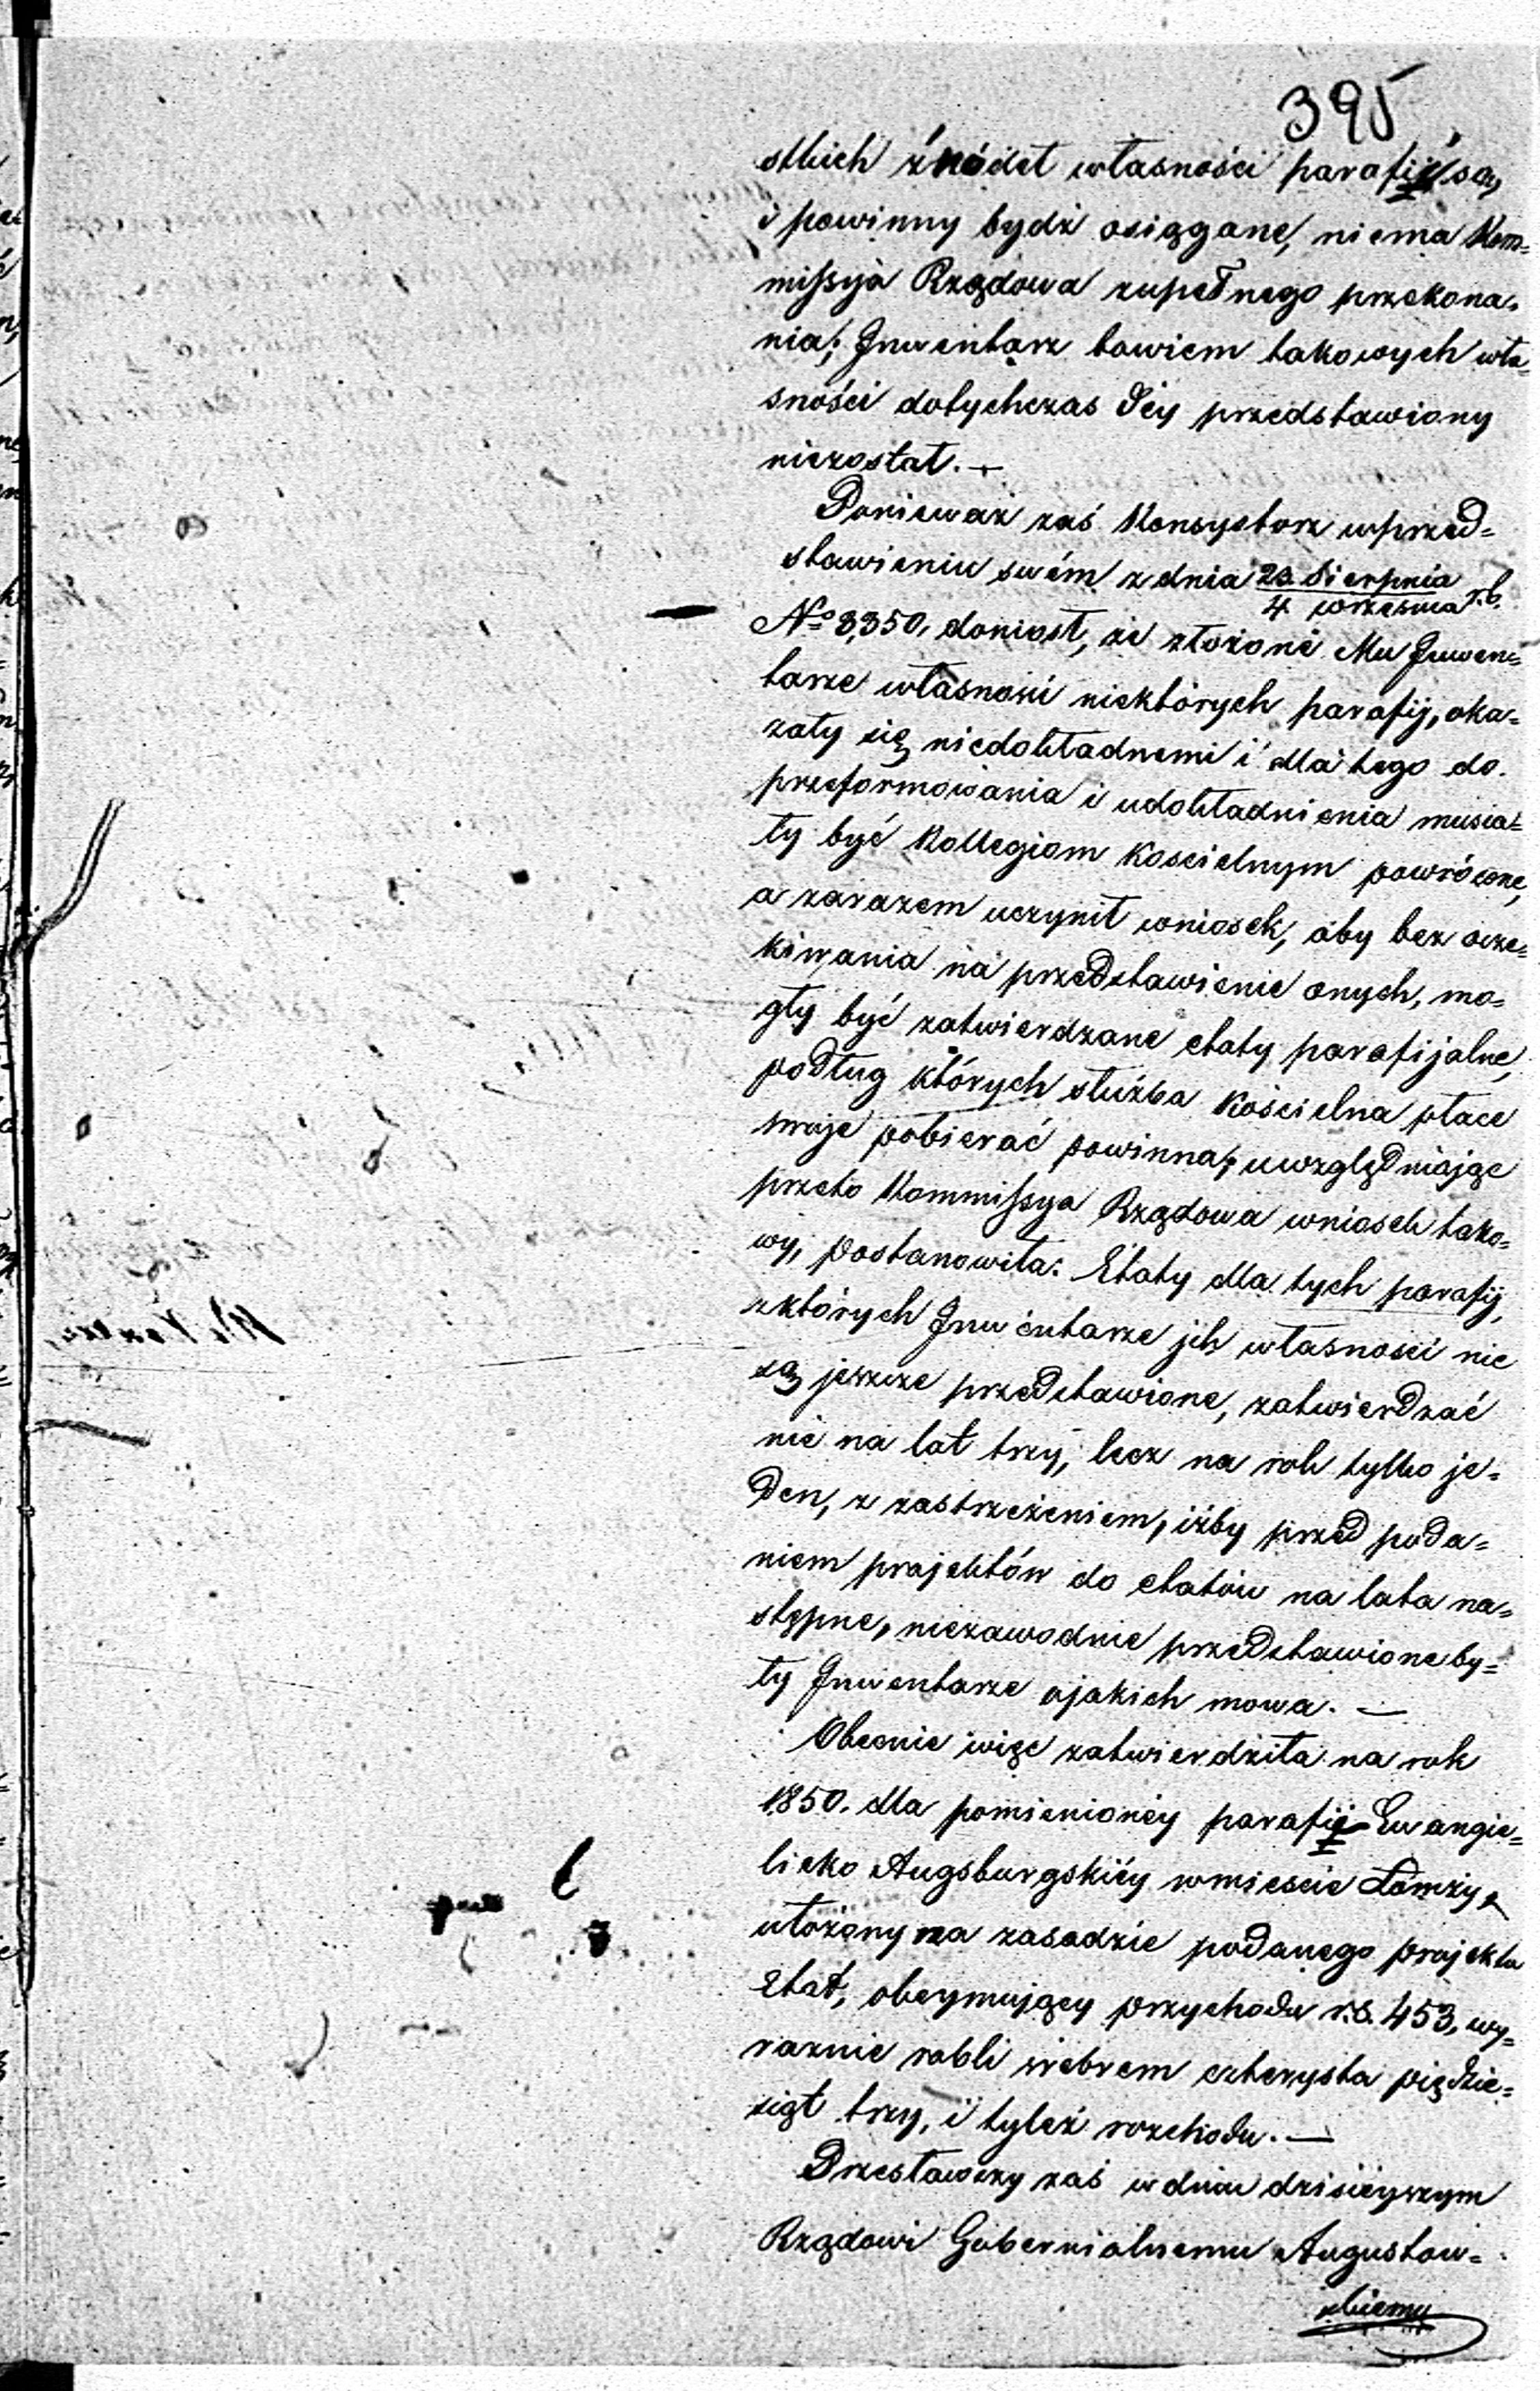 395
stkich źródeł własności parafii są,
i powinny bydź osiągane, niema Kom=
missyja Rządowa zupełnego przekona=
nia; Inwentarz bowiem takowych wła=
sności dotychczas Jéy przedstawiony
niezostał. —
Ponieważ zaś Konsystorz w przed=
stawieniu swém z dnia 23 Sierpnia
4 września r. b.
No 8,350, doniosł, że złożone Mu Inwen=
tarze własności niektórych parafij, oka=
zały się niedokładnemi i dla tego do
przeformowania i udokładnienia musia=
ły być Kollegiom Kościelnym powrócone,
a zarazem uczynił wniosek, aby bez ocze=
kiwania na przedstawienie onych, mo=
gły być zatwierdzane etaty parafijalne,
podług których służba Kościelna płace
swoje pobierać powinna; uwzględniając
przeto Kommissya Rządowa wniosek tako=
wy, postanowiła: Etaty dla tych parafij,
z których Inwentarze jch własności nie
są jeszcze przedstawione, zatwierdzać
nie na lat trzy, lecz na rok tylko je=
den, z zastrzeżeniem, iżby przed poda=
niem projektów do etatów na lata na=
stępne, niezawodnie przedstawione by=
ły Inwentarze ojakich mowa. —
Obecnie więc zatwierdziła na rok
1850. dla pomienionéy parafii Ewangie=
licko Augsburgskiéy w mieście Łomży
ułożony na zasadzie podanego projektu
Etat, obeymujący przychodu r. s. 453, wy=
raznie rubli srebrem czterysta piędzie=
siąt trzy, i tyleż rozchodu. —
Przesławszy zaś w dniu dzisieyszym
Rządowi Gubernialnemu Augustow=
skiemu